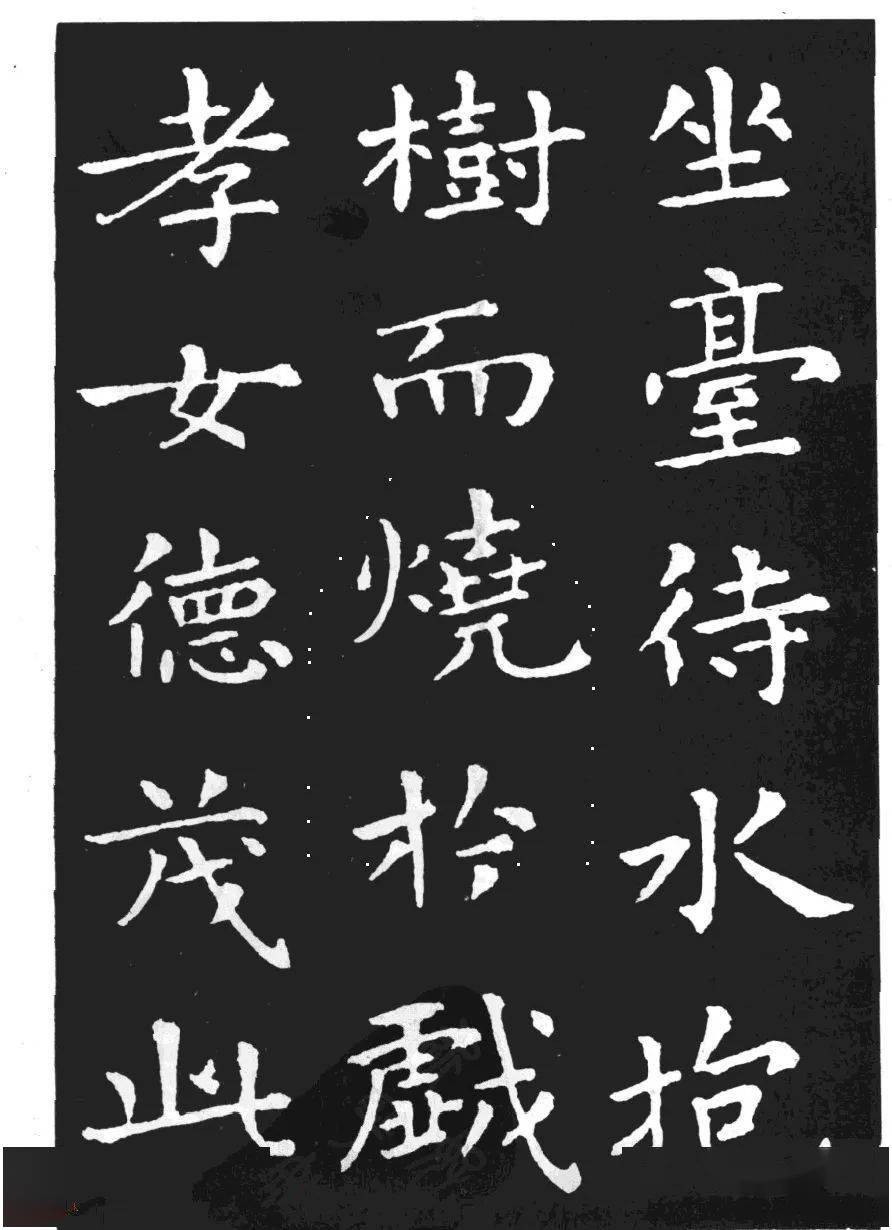 坐臺待水抱
樹而燒扵戯
孝女德茂此